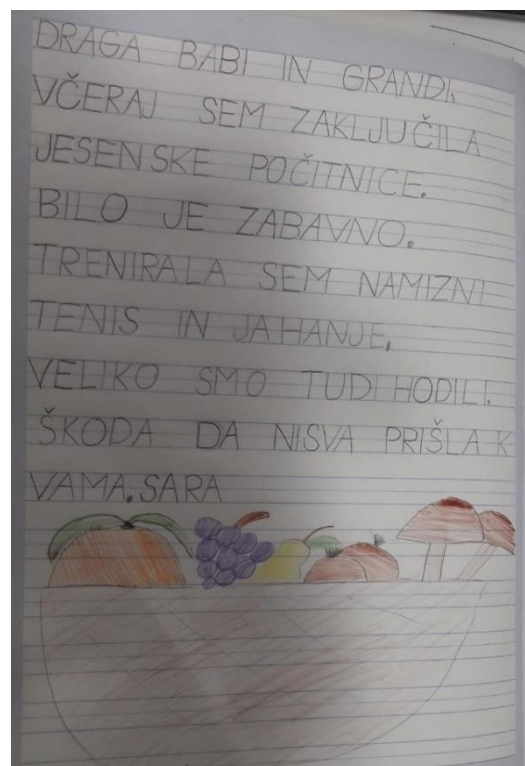 DRAGA BABI IN GRANDI,
VČERAJ SEM ZAKLJUČILA
JESENSKE POČITNICE.
BILO JE ZABAVNO.
TRENIRALA SEM NAMIZNI
TENIS IN JAHANJE.
VELIKO SMO TUDI HODILI.
ŠKODA DA NISVA PRIŠLA K
VAMA. SARA